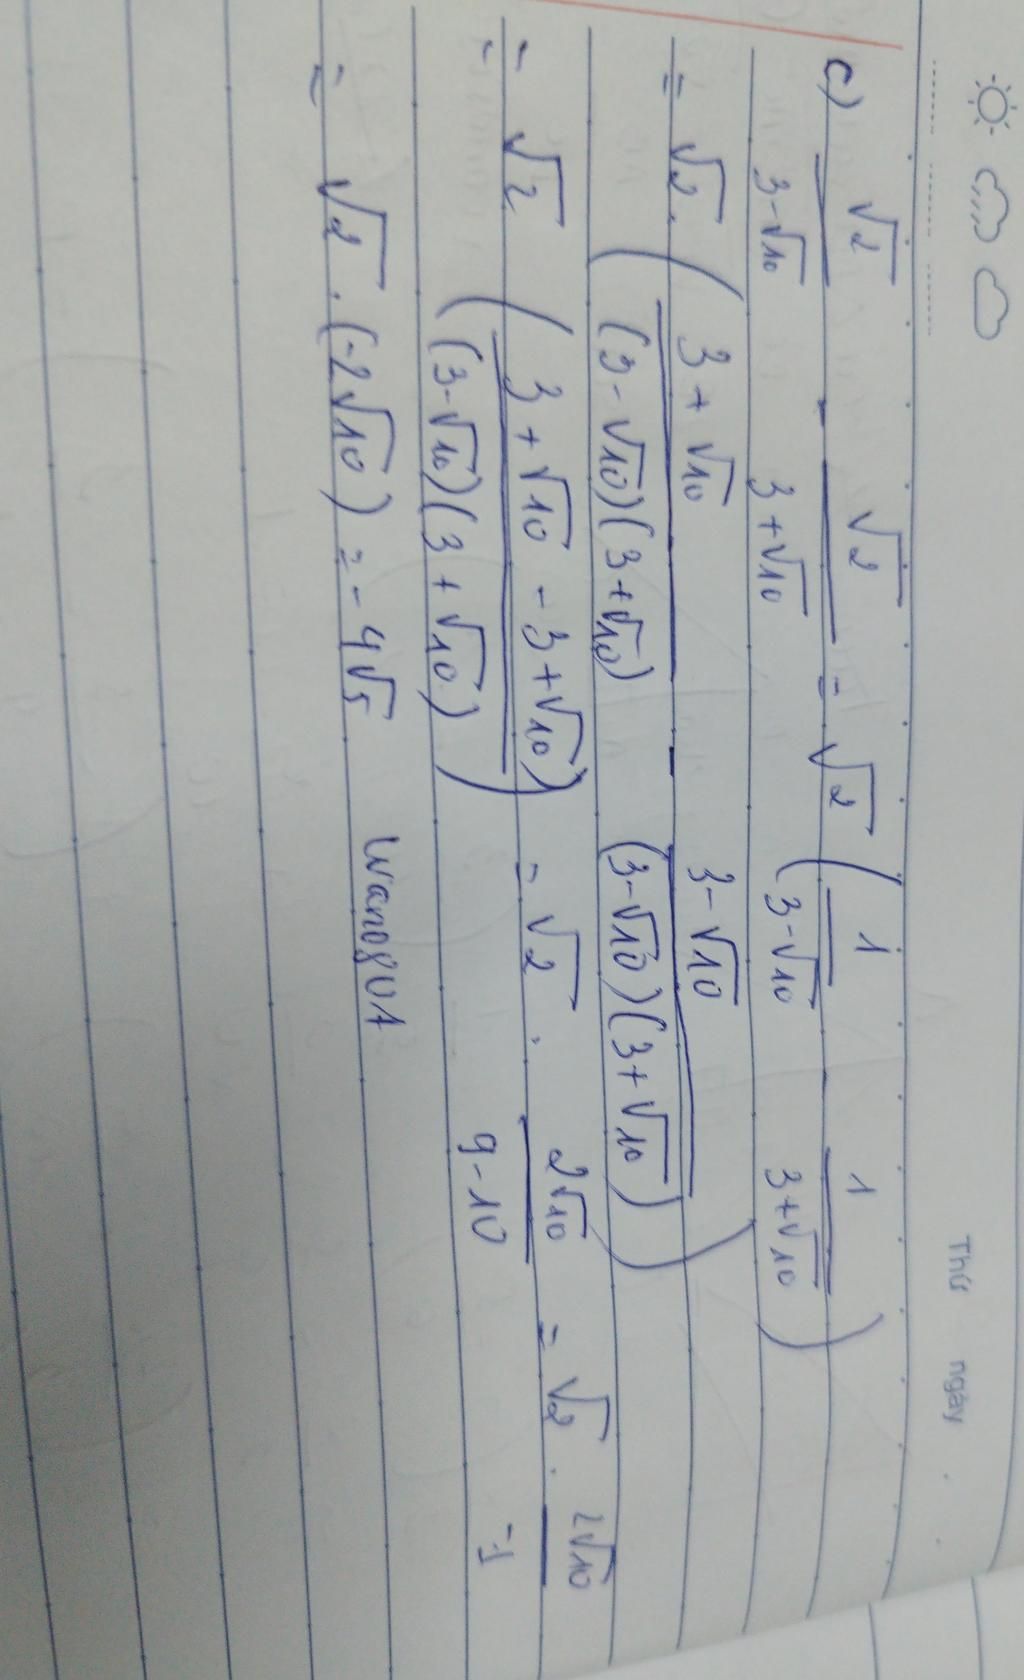 Thứ ngày
c) √2/(3-√10) - √2/(3+√10) = √2 (1/(3-√10) - 1/(3+√10))
= √2 . ((3+√10)/((3-√10)(3+√10)) - (3-√10)/((3-√10)(3+√10)))
= √2 ((3+√10-3+√10)/((3-√10)(3+√10))) = √2 . 2√10/(9-10) = √2 . 2√10/-1
= √2 . (-2√10) = -4√5 Wano801